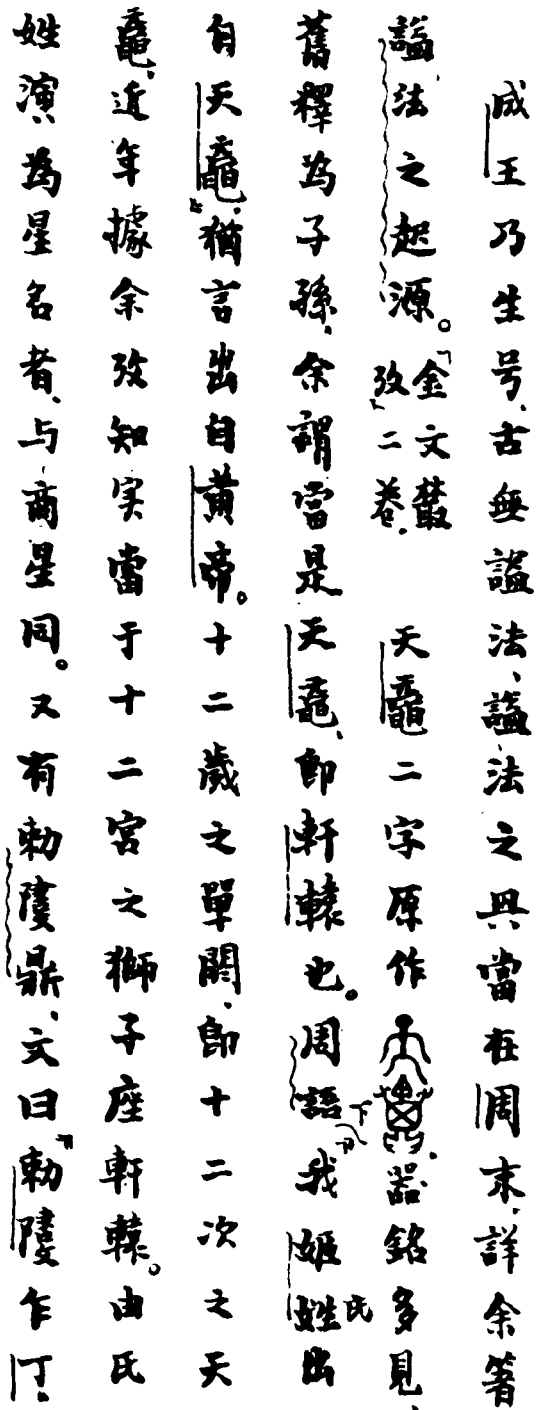 成王乃生号、古無諡法、諡法之興當在周末、詳余箸
諡法之起源。「金文叢攷」二卷、天黿二字原作、器銘多見、
舊釋為子孫、余謂當是天黿、即軒轅也。周語下「我姬氏出
自天黿」、猶言出自黃帝。十二歲之單閼、即十二次之天
黿、近年據余攷知实當于十二宮之獅子座軒轅。由氏
姓演為星名者、与商星同。又有勅𨽿鼎、文曰「勅𨽿乍丁、